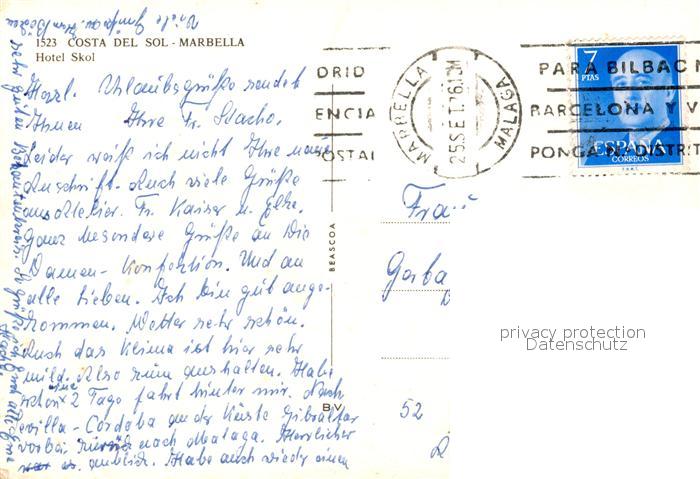 1523 COSTA DEL SOL - MARBELLA
Hotel Skol
Herzl. Urlaubsgrüße sendet
Ihnen Ihre Fr. Stacho.
Leider weiß ich nicht Ihre neue
Anschrift. Auch viele Grüße
ans Atelier. Fr. Kaiser u.
Ganz besondere Grüße an die
Damen-Konfektion. Und an
alle Lieben. Ich bin gut ange-
kommen. Wetter sehr schön.
Auch das Klima ist hier sehr
mild. Also zum aushalten. Habe
schon eine 2 Tage fahrt hinter mir. Nach
Sevilla - Cordoba an der Küste Gibraltar
vorbei zurück nach Malaga. Herrlicher
Anblick. Habe auch wieder einen
sehr guten
Viele Grüße an
BEASCOA
B.V.
DRID
ENCIA
POSTAL
MARBELLA
MALAGA
25 SET 76
PARA BILBAO M
BARCELONA Y V
PONGA Nº DISTRIT
7
PTAS
ESPAÑA
CORREOS
Frau
Gaba
52
privacy protection
Datenschutz